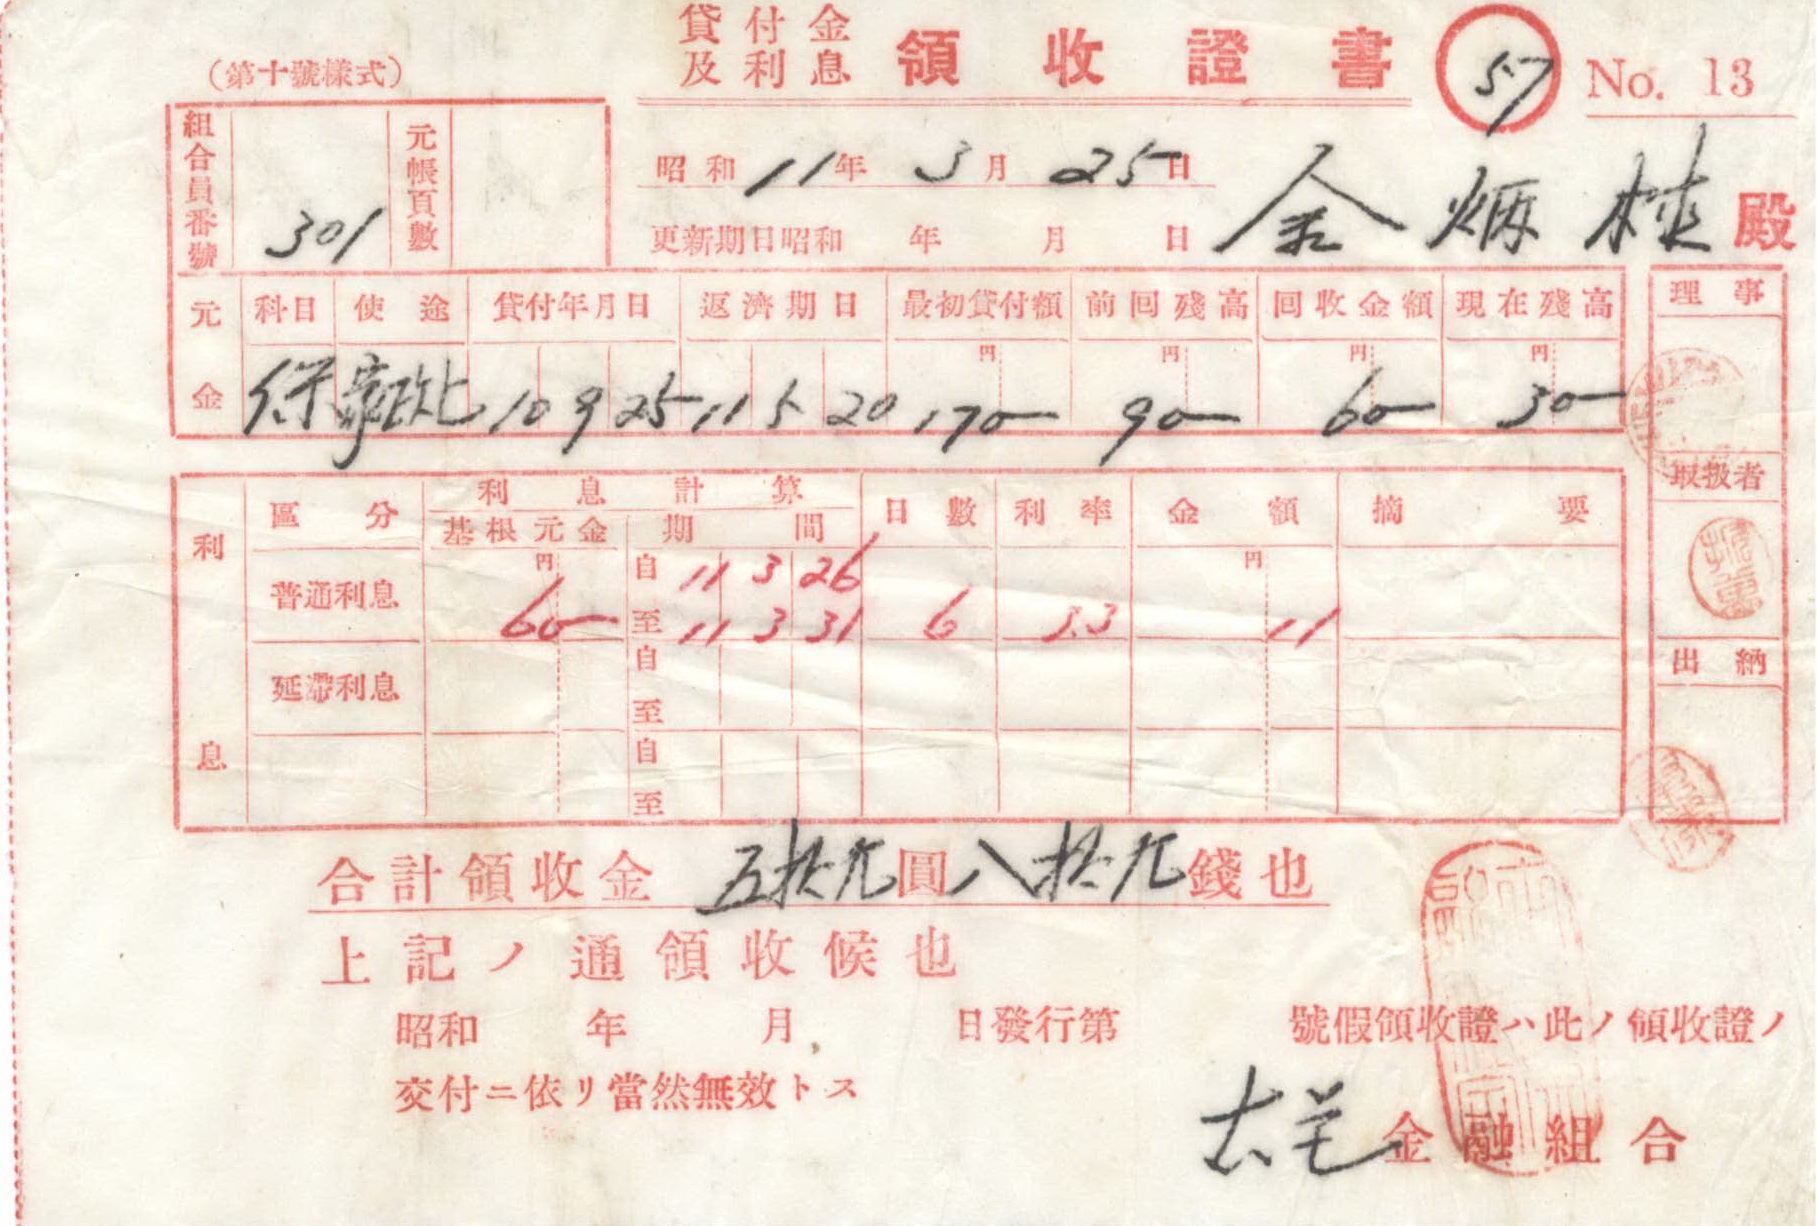 貸付金
及利息 領收證書 57 No. 13
(第十號樣式)
組合員番號 301 元帳頁數
昭和 11年 3月 25日
更新期日昭和 年 月 日
金炳 殿
元金 科目 使途 貸付年月日 返濟期日 最初貸付額 前回殘高 回收金額 現在殘高
円 円 円 円
保 10 9 25 11 5 20 170— 90— 60— 30—
理事
取扱者
出納
利息 區分 利息計算 日數 利率 金額 摘要
基根元金 期間
普通利息 円 60— 自 11 3 26 円
至 11 3 31 6 3.3 11
延滯利息 自
至
自
至
合計領收金 五拾九圓八拾九錢也
上記ノ通領收候也
昭和 年 月 日發行第 號假領收證ハ此ノ領收證ノ
交付ニ依リ當然無效トス
金融組合